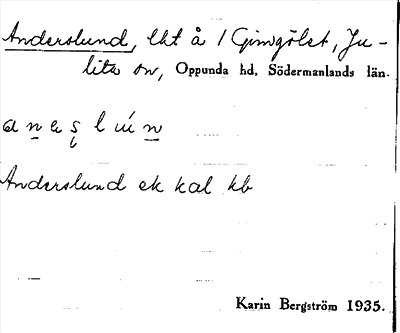 Anderslund, lht å 1 Gimgölet, Ju-
lita sn, Oppunda hd. Södermanlands län.
Anderslund ek kal kb
Karin Bergström 1935.